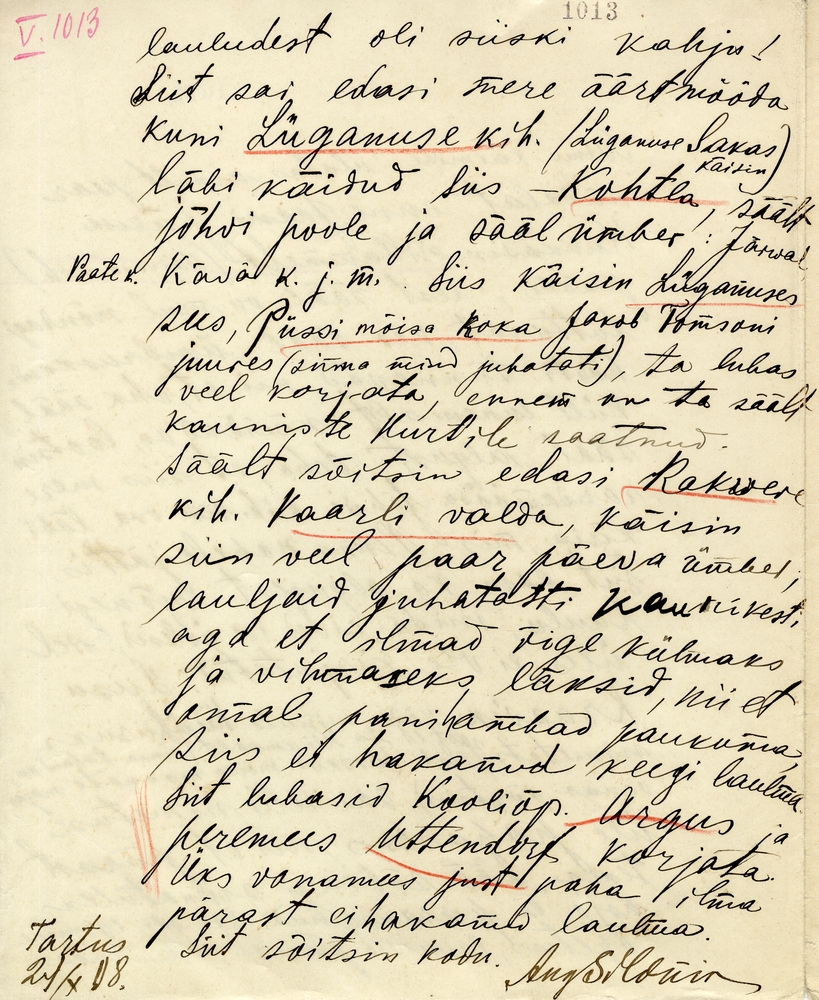 V. 1013
1013
lauludest oli siiski kahju!
Siit sai edasi mere äärt mööda
kuni Lüganuse kih. (Lüganuse Sakas
käisin)
läbi käidud siis – Kohtla, säält
Jõhvi poole ja sääl ümber: Järwal,
Paate k. Kävä k. j. m. Siis käisin Lüganuses
sus, Püssi mõisa Koka Jakob Tomsoni
juures (sinna mind juhatati), ta lubas
veel korjata, ennem on ta säält
kauniste Hurtile saatnud.
Säält sõitsin edasi Rakwere
kih. Kaarli valda, käisin
siin veel paar päeva ümber,
lauljaid juhatatti kaunikesti,
aga et ilmad õige külmaks
ja vihmaseks läksid, nii et
omal pani hambad paukuma,
siis ei hakanud keegi laulma.
Siit lubasid Kooliõp. Argus ja
peremees Uttendorf korjata.
Üks vanamees just paha ilma
pärast ei hakanud laulma.
Siit sõitsin kodu.
Tartus
24/X 08.